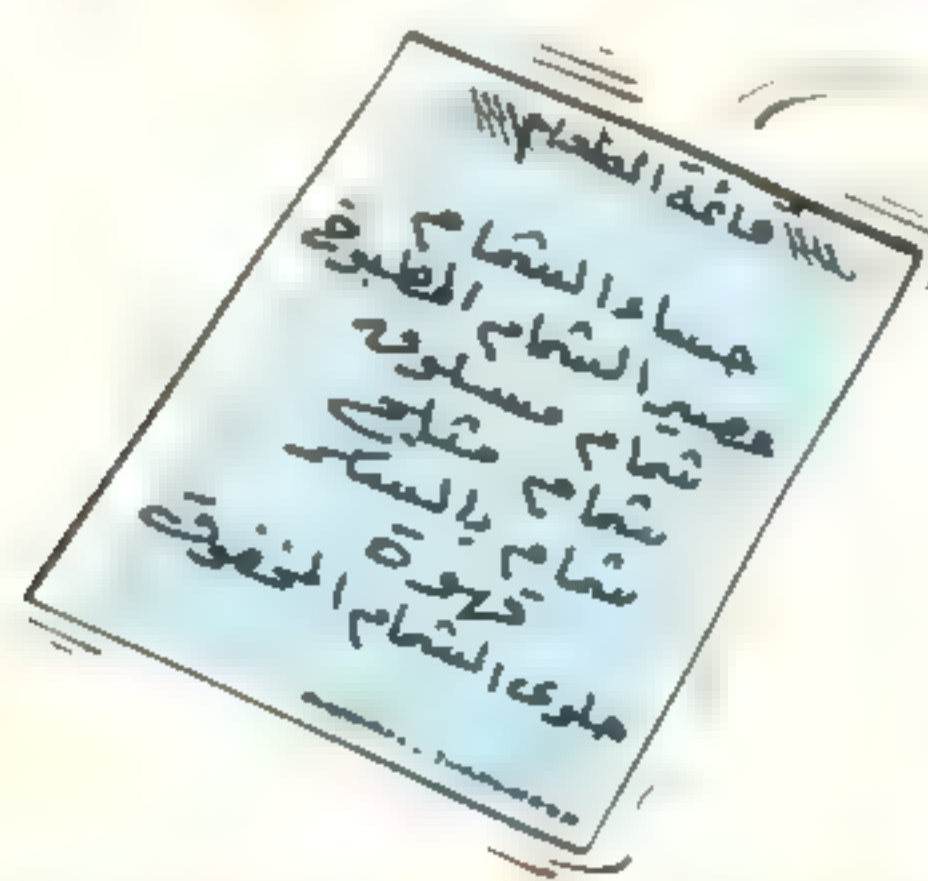 قائمة الطعام
حساء الشمام
عصير الشمام المطبوخ
شمام مسلوق
شمام مثلج
شمام بالسكر
قهوة
حلوى الشمام المخفوق